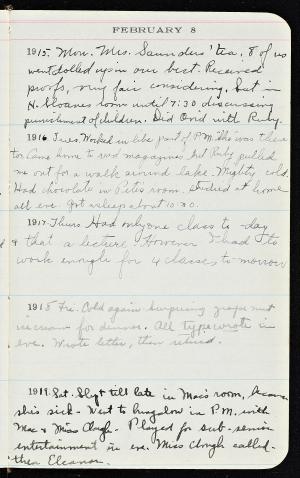 FEBRUARY 8
1915. Mon. Mrs. Saunders' tea, 8 of us
went dolled up in our best. Received
proofs, very fair considering. Sat in
H. Sloanes room until 7:30 discussing
punishment of children. Did Ovid with Ruby.
1916 Tues. Worked in libe part of P.M. was there
too. Came home to read magazines but Ruby pulled
me out for a walk around lake. Mighty cold.
Had chocolate in Pete's room. Studied at home
all eve. Got asleep about 10:30.
1917. Thurs Had only one class to-day
& that a lecture. However I had to
work enough for 4 classes to-morrow
1918 Fri. Cold again. Surprising grape nut
ice cream for dinner. All typewrote in
eve. Wrote letter, then retired.
1919. Sat. Slept till late in Mac's room,
she's sick. Went to bungalow in P.M. with
Mac & Miss Clough. Played for sub-senior
entertainment in eve. Miss Clough called
then Eleanor.